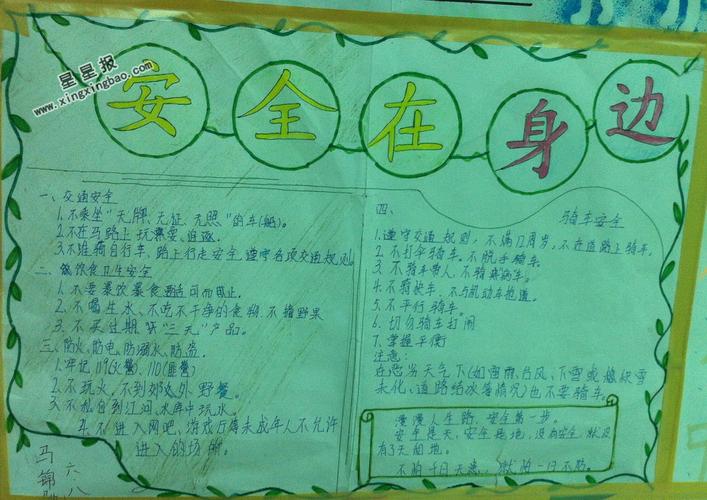 星星报
www.xingxingbao.com
安全在身边
一、交通安全
1.不乘坐"无牌、无证、无照"的车(船)。
2.不在马路上玩耍、追逐。
3.不准骑自行车、路上行走安全遵守各项交通规则。
二、饮食卫生安全
1.不要暴饮暴食适可而止。
2.不喝生水、不吃不干净的食物、不摘野果
3.不买过期"三无"产品。
三、防火、防电、防溺水、防盗.
1.牢记119(火警)、110(匪警)
2.不玩火,不到郊外野餐。
3.不私自到江河、水库中玩水。
4.不进入网吧、游戏厅等未成年人不允许
进入的场所。
马锦
六八
四、骑车安全
1.遵守交通规则,不满12周岁,不在道路上骑车。
2.不打伞骑车、不脱手骑车。
3.不骑车带人、不骑病车。
4.不骑快车、不与机动车抢道。
5.不平行骑车。
6.切勿骑车打闹
7.掌握平衡
注意:
在恶劣天气下(如雷雨、台风、下雪或积雪
未化、道路结冰等情况)也不要骑车。
漫漫人生路,安全第一步。
安全是天,安全是地,没有安全,就没
有了天和地。
不怕千日无患,就怕一日不防。